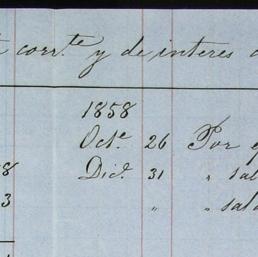 corr.te y de interes
1858
Octe 26 Por
8 Dice 31 " sal
3 " " sald